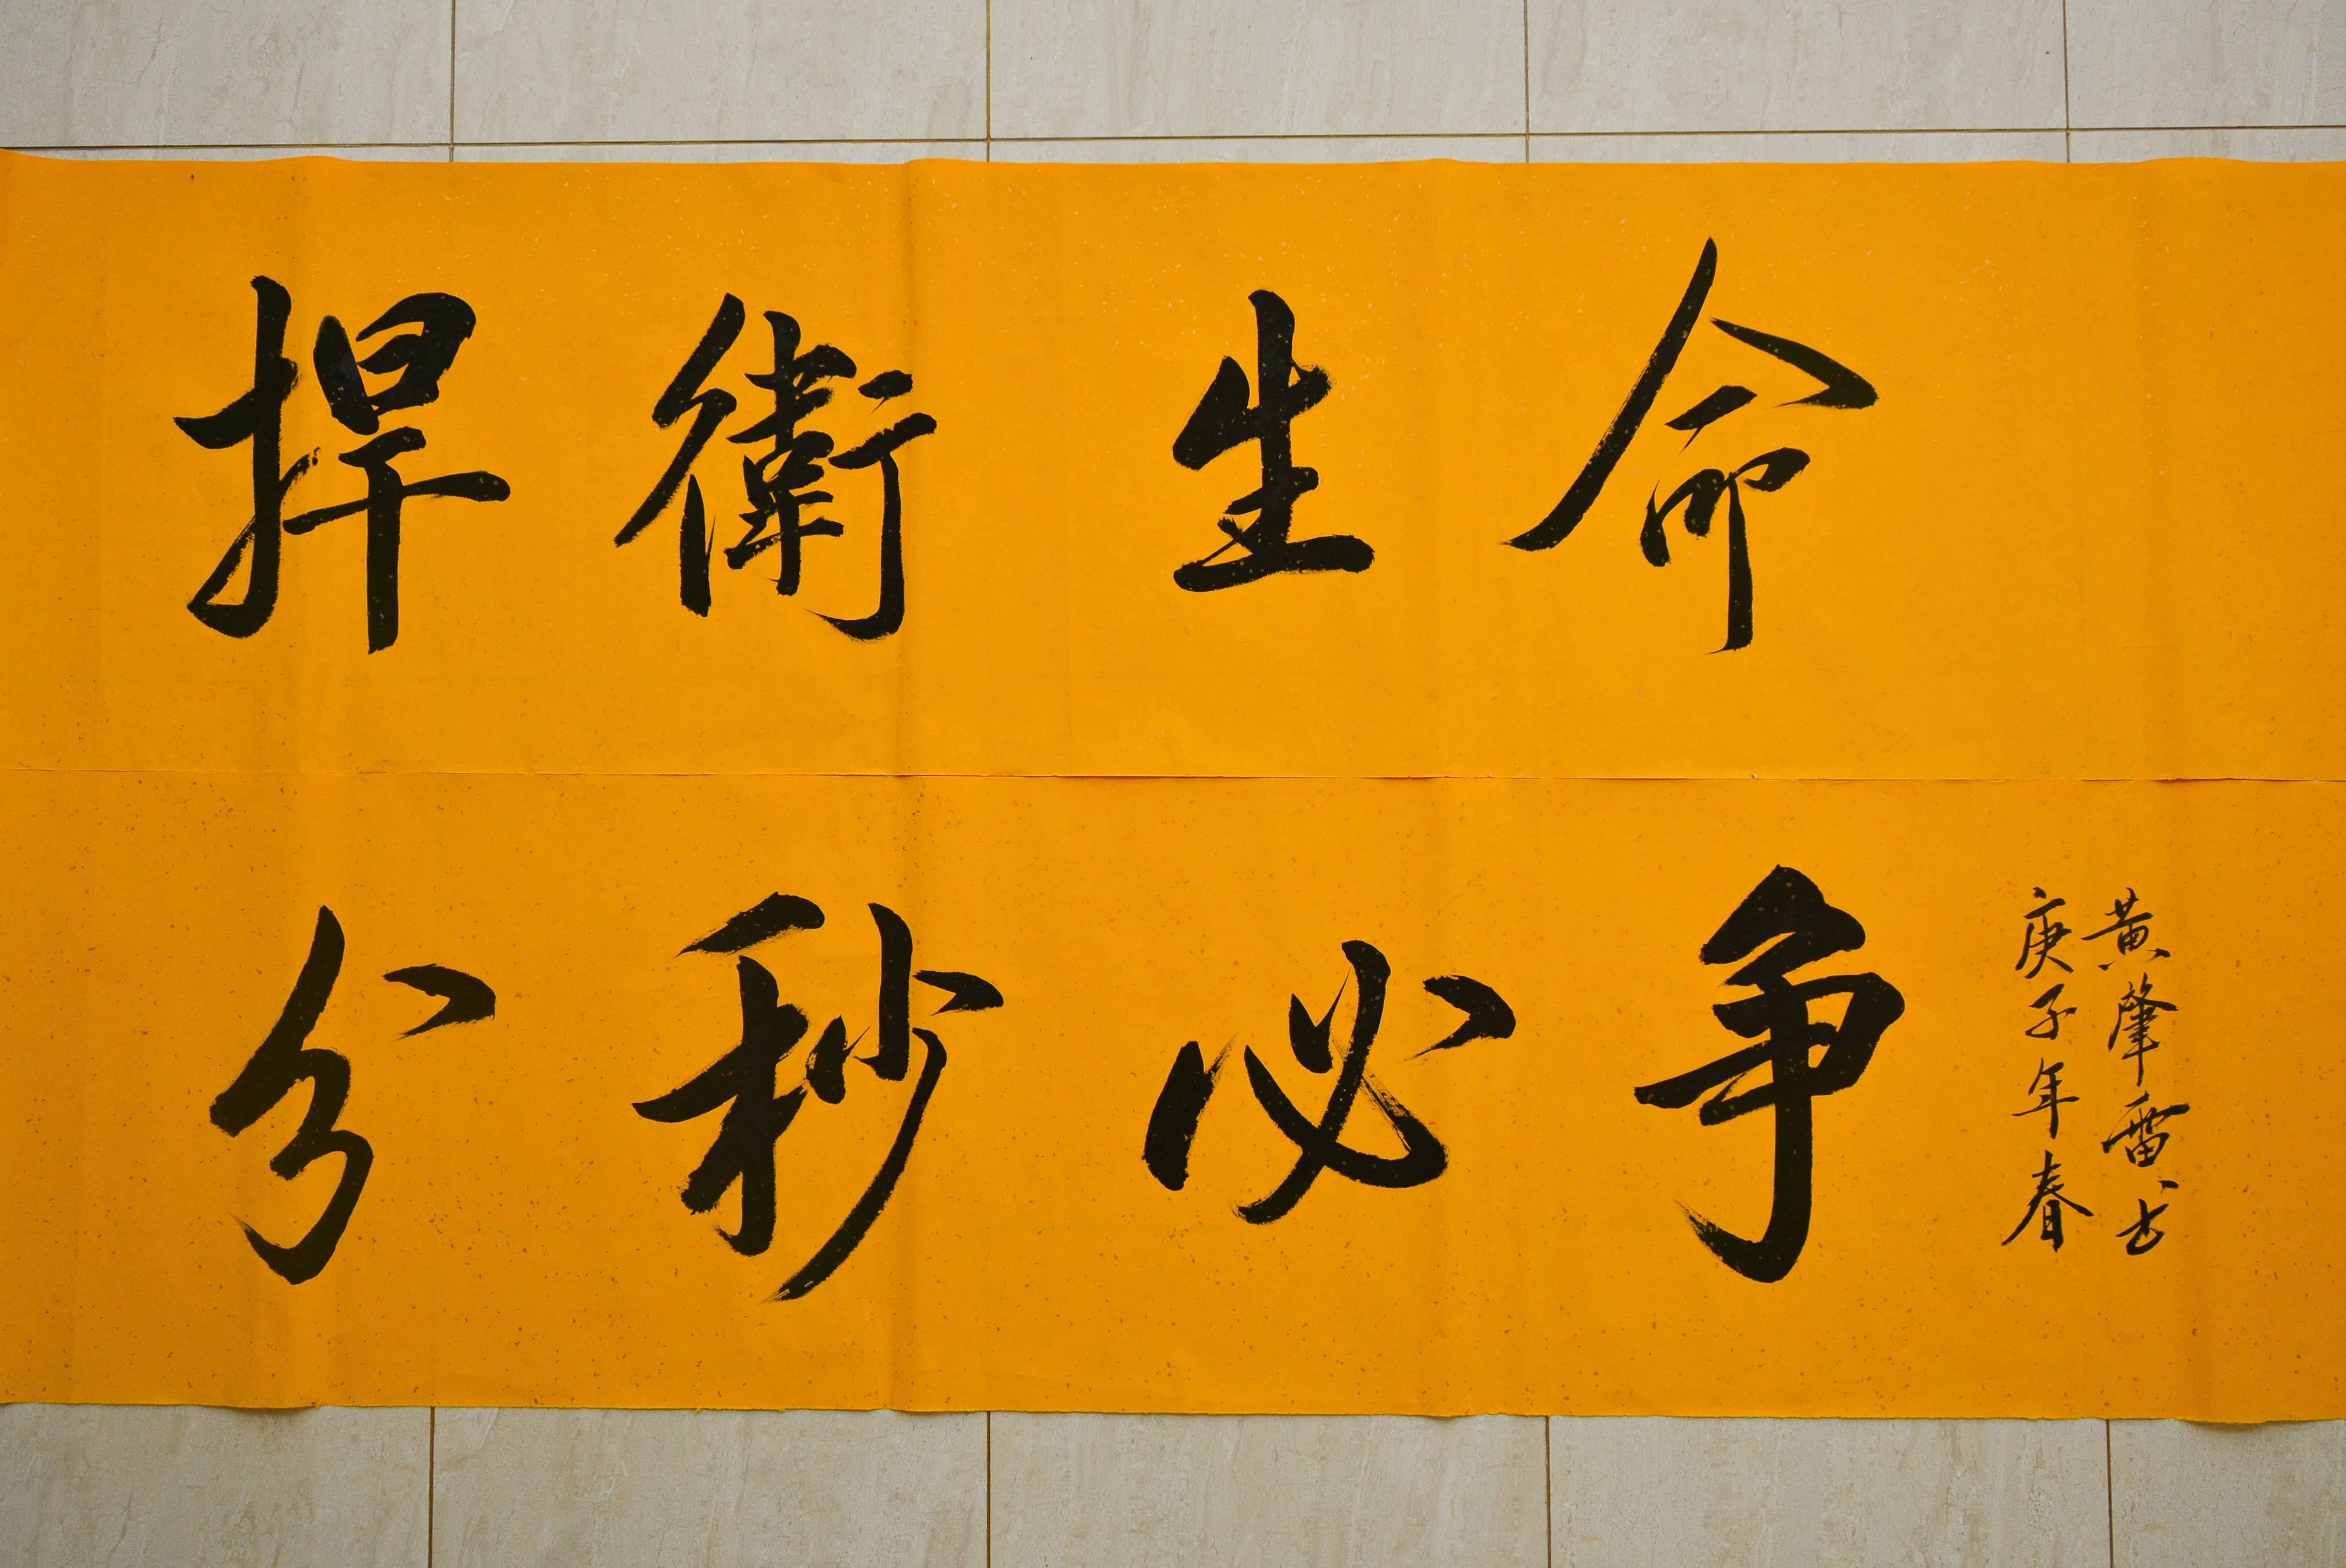 捍衛生命
分秒必争
庚子年春
黄肇雷书